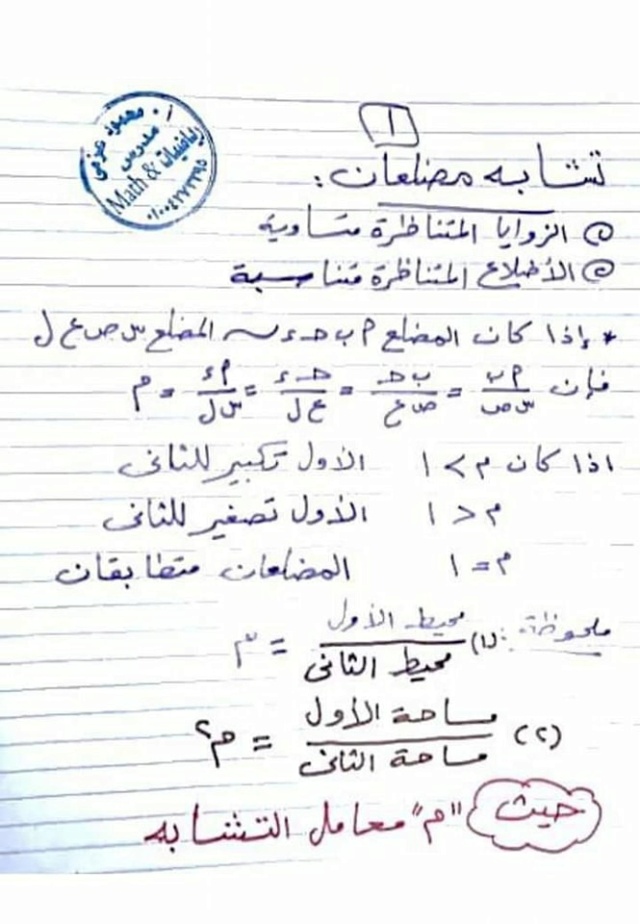 ١
أ. محمود عزمي
مدرس
رياضيات & Math
تشابه مضلعان:
الزوايا المتناظرة متساوية
الأضلاع المتناظرة متناسبة
* إذا كان المضلع م ب حـ ء ~ المضلع س ص ع ل
فإن م ب / س ص = ب حـ / ص ع = حـ ء / ع ل = م ء / س ل = م
اذا كان م > ١ الأول تكبير للثانى
م < ١ الأول تصغير للثانى
م = ١ المضلعان متطابقان
ملحوظة: (١) محيط الأول / محيط الثانى = م
(٢) مساحة الأول / مساحة الثانى = م²
حيث "م" معامل التشابه